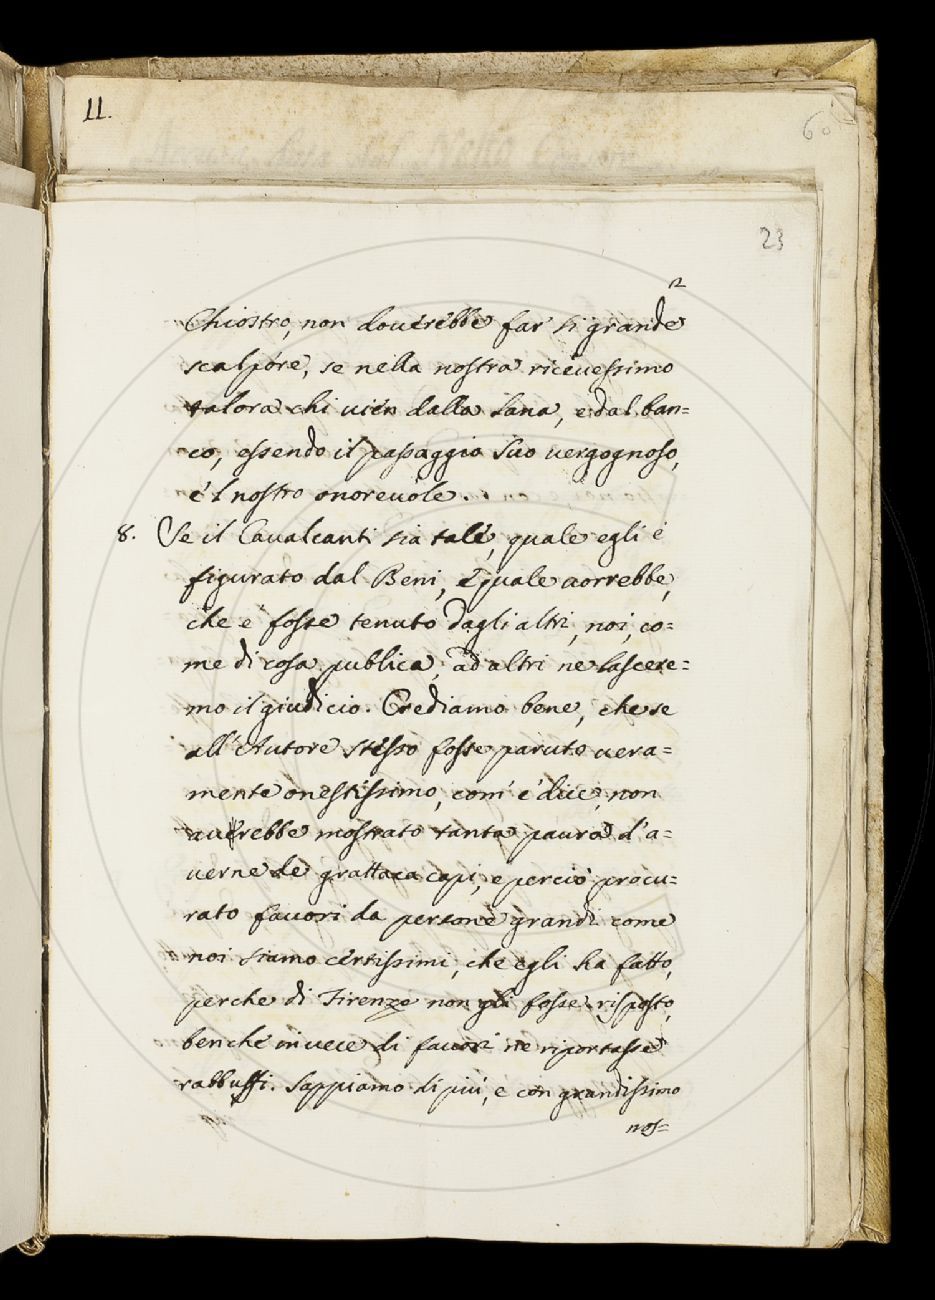 11.
60
23
2
Chiostro, non douerebbe far sì grande
scalpore, se nella nostra riceuessimo
talora chi uien dalla Lana, e dal ban=
co, essendo il passaggio suo uergognoso,
e 'l nostro onoreuole.
8. Se il Caualcanti sia tale, quale egli è
figurato dal Beni, e quale uorrebbe,
che e' fosse tenuto dagli altri, noi, co=
me di cosa publica, ad altri ne lascere=
mo il giudicio. Crediamo bene, che se
all'Autore stesso fosse paruto uera=
mente onestissimo, com' e' dice, non
auerebbe mostrato tanta paura d'a=
uerne de grattacapi, e perciò procu=
rato fauori da persone grandi come
noi siamo certissimi, che egli ha fatto,
perche di Firenze non gli fosse risposto,
benche inuece di fauori ne riportasse
rabbuffi. Sappiamo di più, e con grandissimo
nos=